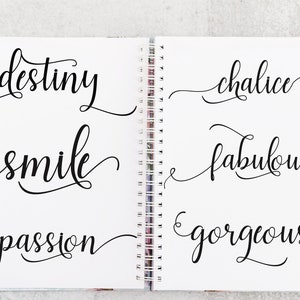 destiny
smile
passion
chalice
fabulou
gorgeous